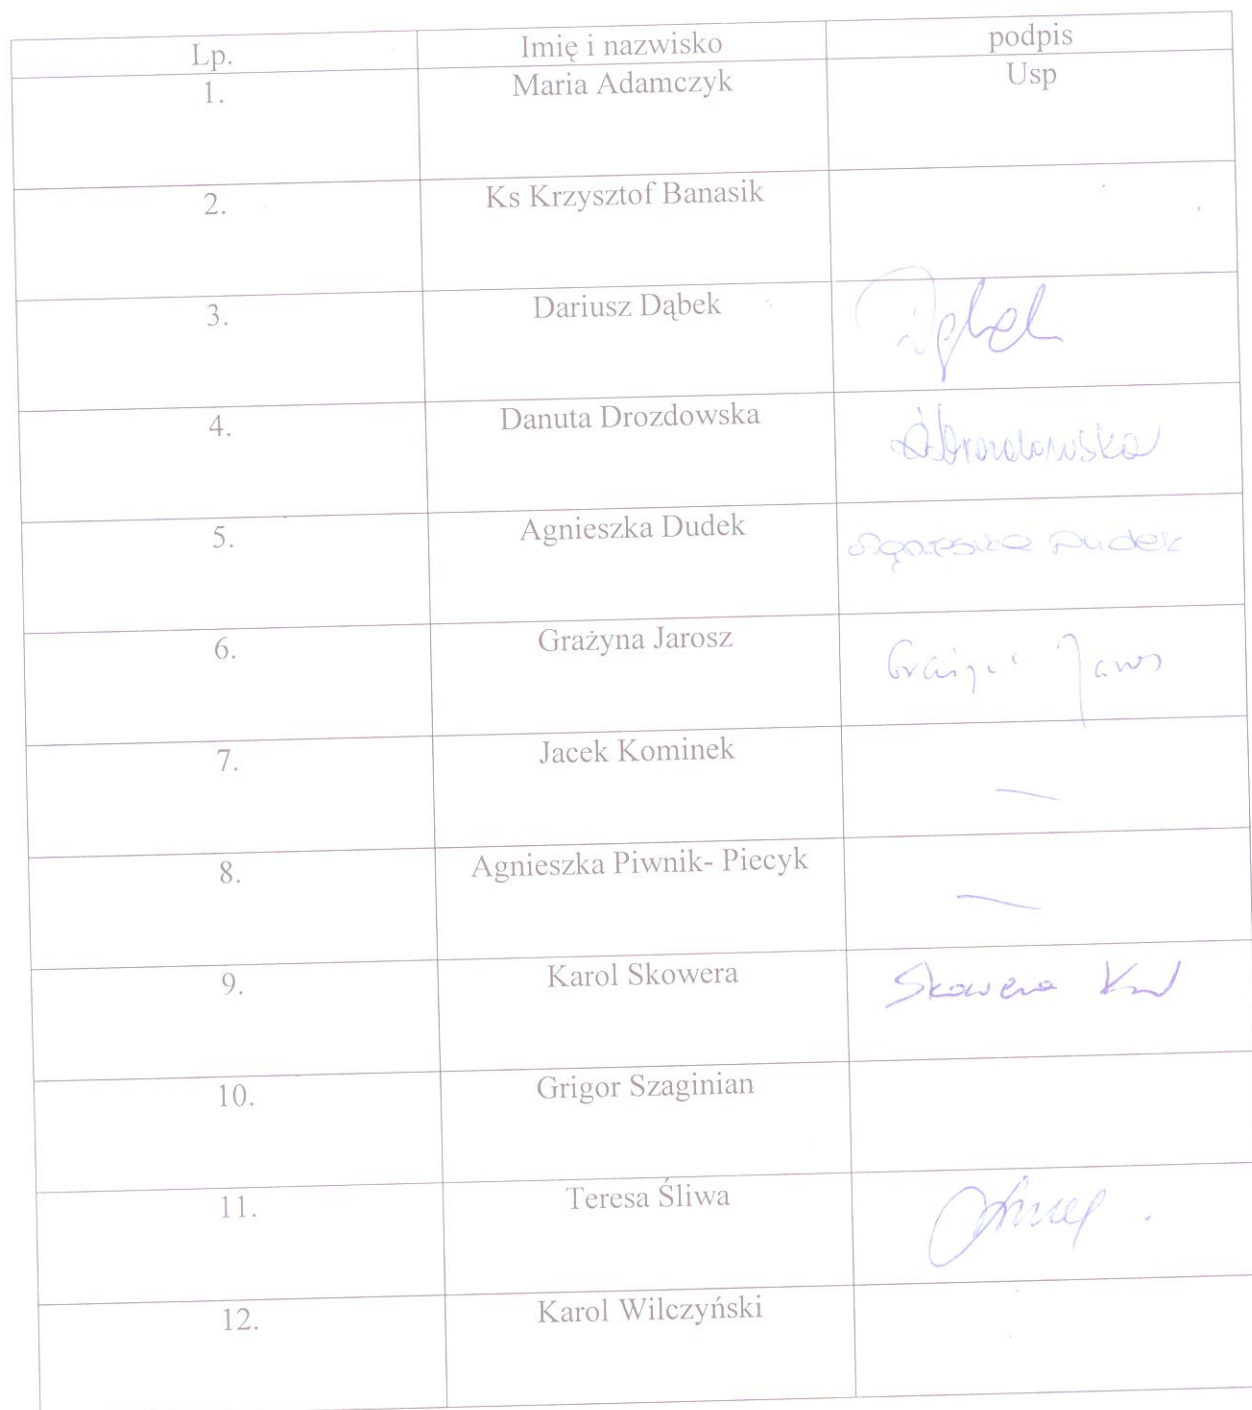 Lp. Imię i nazwisko podpis
1. Maria Adamczyk Usp
2. Ks Krzysztof Banasik
3. Dariusz Dąbek
4. Danuta Drozdowska Drozdowska
5. Agnieszka Dudek Agnieszka Dudek
6. Grażyna Jarosz Grażyna Jarosz
7. Jacek Kominek —
8. Agnieszka Piwnik- Piecyk —
9. Karol Skowera Skowera
10. Grigor Szaginian
11. Teresa Śliwa
12. Karol Wilczyński